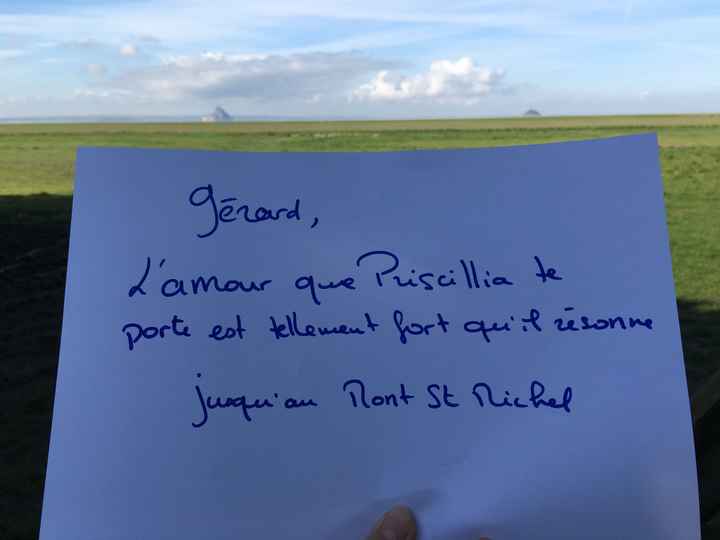 Gérard,
L'amour que Priscillia te
porte est tellement fort qu'il résonne
jusqu'au Mont St Michel